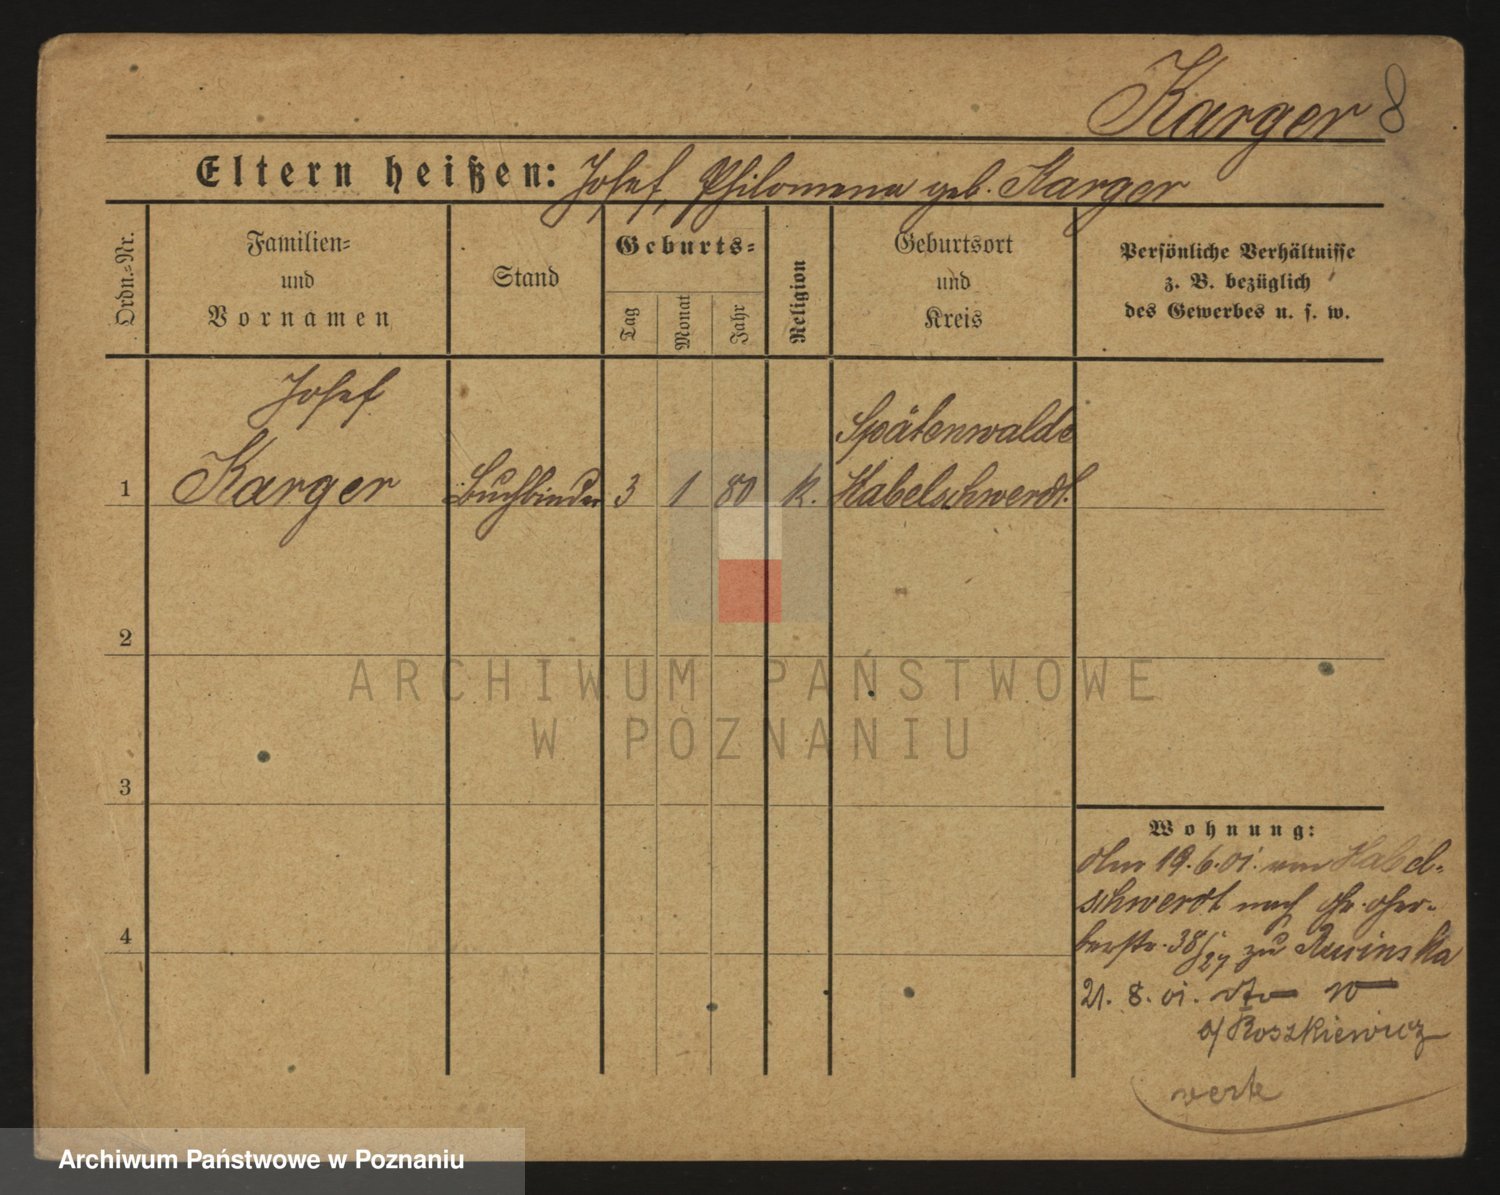 Karger 8
Eltern heißen: Josef, Philomena geb. Karger
Ordn.=Nr.
Familien=
und
Vornamen
Stand
Geburts=
Tag
Monat
Jahr
Religion
Geburtsort
und
Kreis
Persönliche Verhältnisse
z. B. bezüglich
des Gewerbes u. s. w.
1
Josef
Karger
Buchbinder
3
1
80
k.
Spätenwalde
Habelschwerdt.
2
3
4
Wohnung:
19.6.01. von Habel=
schwerdt nach
38/27 zu
21. 8. 01.
Roszkiewicz
verte
ARCHIWUM PAŃSTWOWE
W POZNANIU
Archiwum Państwowe w Poznaniu